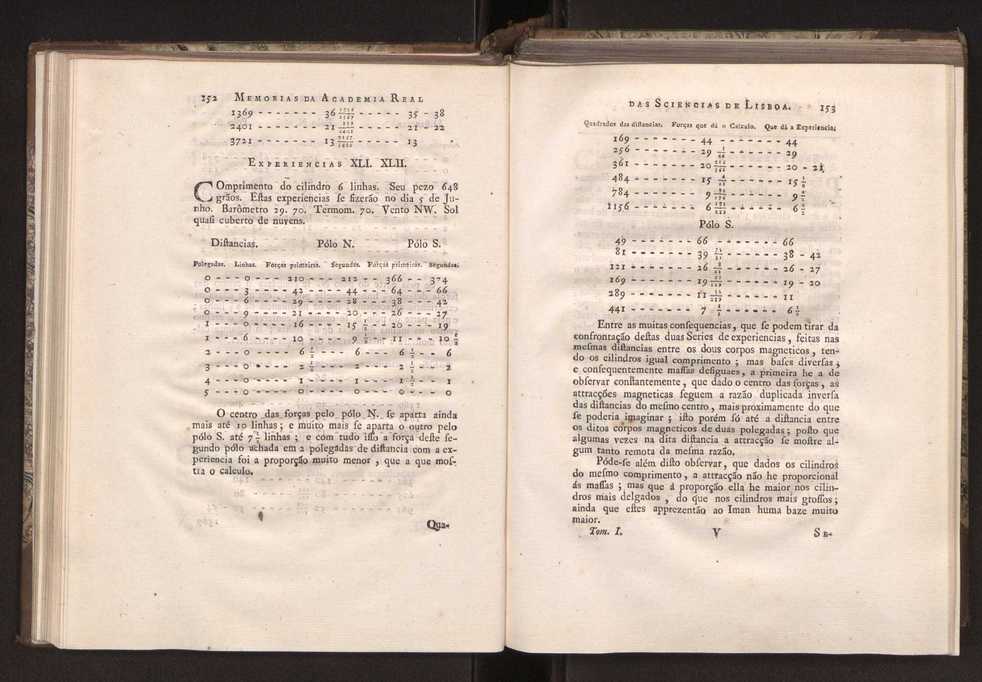 152 MEMORIAS DA ACADEMIA REAL
1369 - - - - - - - 36 - - - - - 35 - 38
2401 - - - - - - - 21 - - - - - 21 - 22
3721 - - - - - - - 13 - - - - - 13
EXPERIENCIAS XLI. XLII.
COmprimento do cilindro 6 linhas. Seu pezo 648
grãos. Eſtas experiencias ſe fizerão no dia 5 de Ju-
nho. Barômetro 29. 70. Térmom. 70. Vento NW. Sol
quaſi cuberto de nuvens.
Diſtancias. Pólo N. Pólo S.
Polegadas. Linhas. Forças primeiras. Segundas. Forças primeiras. Segundas.
0 - - - 0 - - - 210 - - - - 212 - - 366 - - 374
0 - - - 3 - - - - 42 - - - - 44 - - - 64 - - - 66
0 - - - 6 - - - - 29 - - - - 28 - - - 38 - - - 42
0 - - - 9 - - - - 21 - - - - 20 - - - 26 - - - 27
1 - - - 0 - - - - 16 - - - - 15 1/2 - - 20 - - - 19
1 - - - 6 - - - - 10 - - - - 9 1/2 - - 11 - - - 10
2 - - - 0 - - - - 6 1/2 - - - 6 - - - 6 1/2 - - 6
3 - - - 0 - - - - 2 1/2 - - - 2 - - - 2 1/2 - - 2
4 - - - 0 - - - - 1 - - - - 1 - - - 1 1/2 - - 1
5 - - - 0 - - - - 0 - - - - 0 - - - 0 - - - - 0
O centro das forças pelo pólo N. ſe aparta ainda
mais até 10 linhas; e muito mais ſe aparta o outro pelo
pólo S. até 7 1/2 linhas; e com tudo iſſo a força deſte ſe-
gundo pólo achada em 2 polegadas de diſtancia com a ex-
periencia foi a proporção muito menor, que a que moſ-
tra o calculo.
Qua-
DAS SCIENCIAS DE LISBOA. 153
Quadrados das diſtancias. Forças que dá o Calculo. Que dá a Experiencia.
169 - - - - - - - 44 - - - - - - - 44
256 - - - - - - - 29 - - - - - - 29
361 - - - - - - - 20 - - - - - - 20 - 21
484 - - - - - - - 15 - - - - - - 15 1/2
784 - - - - - - - 9 - - - - - - 9 1/2
1156 - - - - - - - 6 - - - - - - 6 1/2
Pólo S.
49 - - - - - - - 66 - - - - - - - 66
81 - - - - - - - 39 - - - - - - 38 - 42
121 - - - - - - - 26 - - - - - - 26 - 27
169 - - - - - - - 19 - - - - - - 19 - 20
289 - - - - - - - 11 - - - - - - 11
441 - - - - - - - 7 - - - - - - 6 1/2
Entre as muitas conſequencias, que ſe podem tirar da
confrontação deſtas duas Series de experiencias, feitas nas
meſmas diſtancias entre os dous corpos magneticos, ten-
do os cilindros igual comprimento; mas baſes diverſas,
e conſequentemente maſſas deſiguaes, a primeira he a de
obſervar conſtantemente, que dado o centro das forças, as
attracções magneticas ſeguem a razão duplicada inverſa
das diſtancias do meſmo centro, mais proximamente do que
ſe poderia imaginar; iſto porém ſó até a diſtancia entre
os ditos corpos magneticos de duas polegadas; poſto que
algumas vezes na dita diſtancia a attracção ſe moſtre al-
gum tanto remota da meſma razão.
Póde-ſe além diſto obſervar, que dados os cilindros
do meſmo comprimento, a attracção não he proporcional
ás maſſas; mas que á proporção ella he maior nos cilin-
dros mais delgados, do que nos cilindros mais groſſos;
ainda que eſtes apprezentão ao Iman huma baze muito
maior.
Tom. I. V SE-